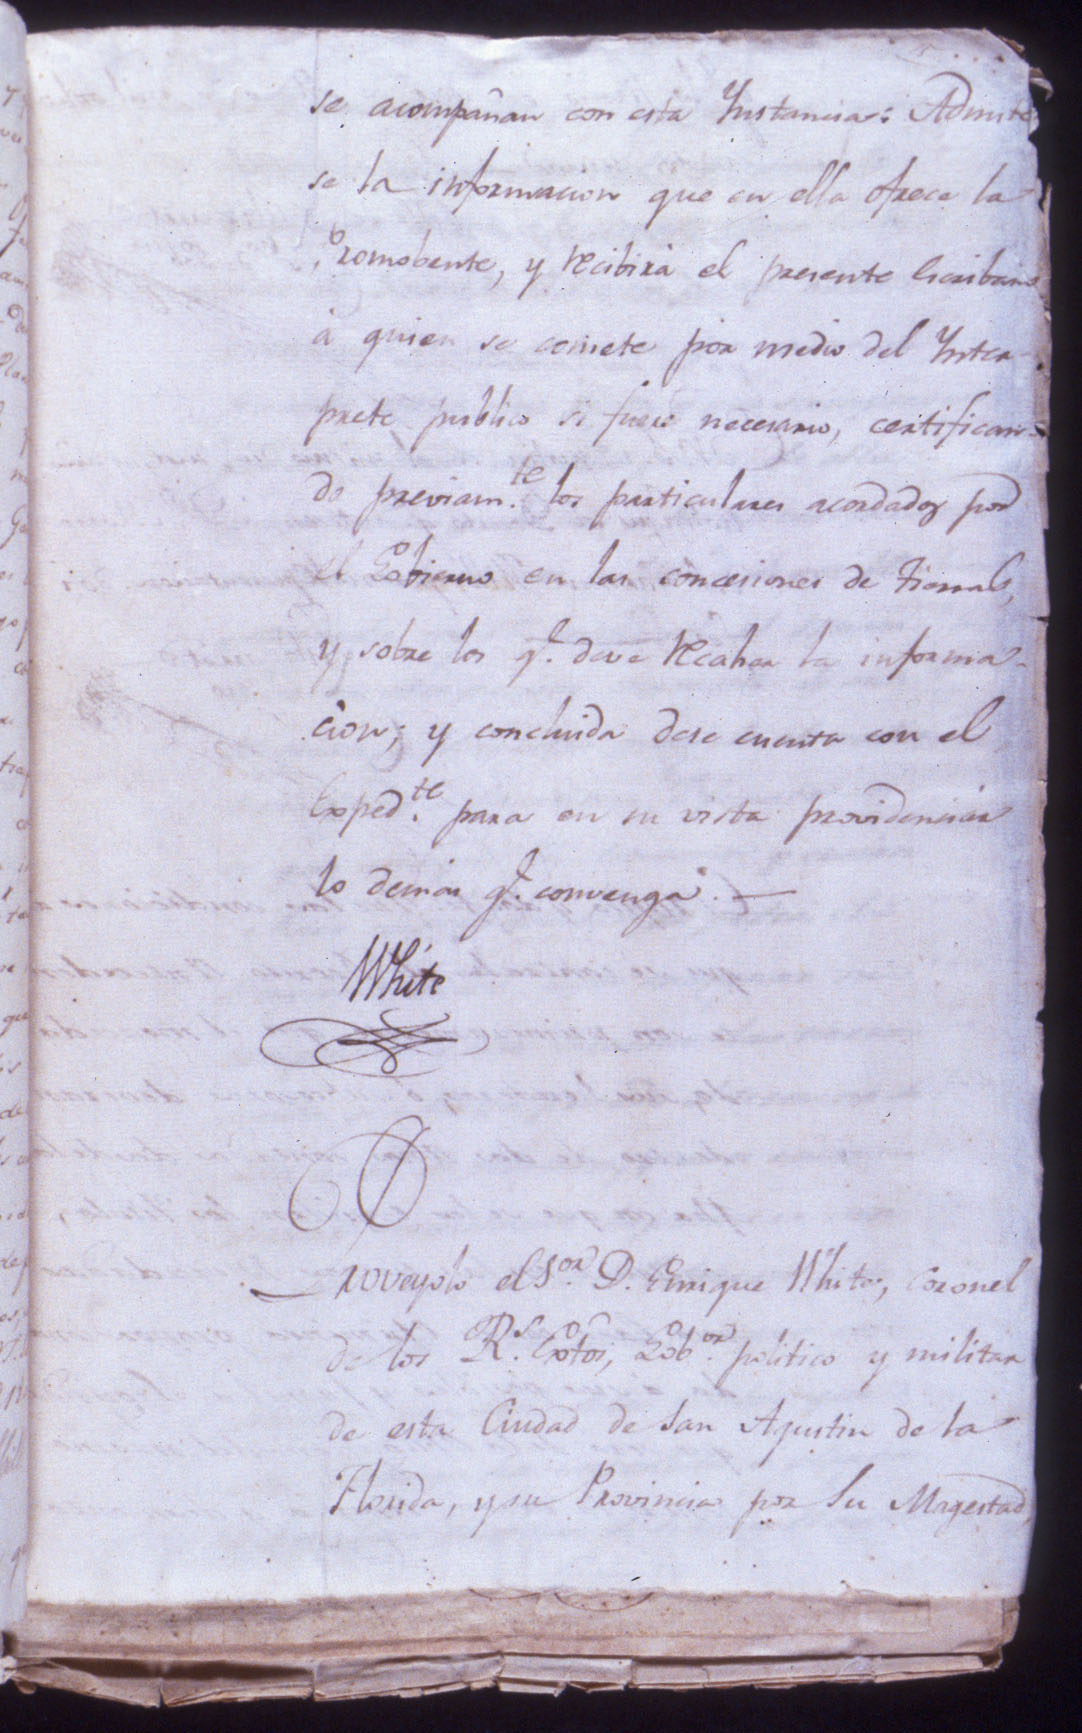 se acompañan con esta Ynstancia: Admite
se la informacion que en ella ofrece la
Promobente, y recibirá el presente Escribano
á quien se comete por medio del Ynter-
prete publico si fuere necesario, certifican-
do previam.te los particulares acordados por
el Gobierno en las concesiones de tierras,
y sobre los q.e deve recaher la informa-
cion; y concluida dese cuenta con el
Exped.te para en su vista providenciar
lo demas q.e convenga. —
White
Proveyolo el S.or D. Enrique White, Coronel
de los R.s Extos, Gob.or politico y militar
de esta Ciudad de San Agustin de la
Florida, y su Provincia por Su Magestad,